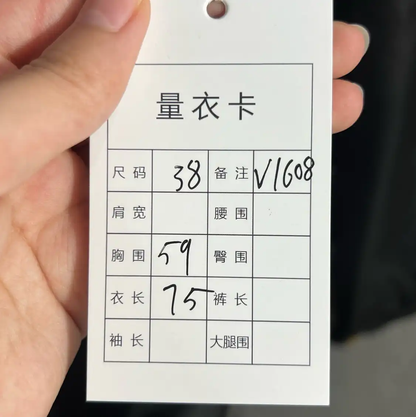 量衣卡
尺码 38 备注 V1608
肩宽 腰围
胸围 59 臀围
衣长 75 裤长
袖长 大腿围